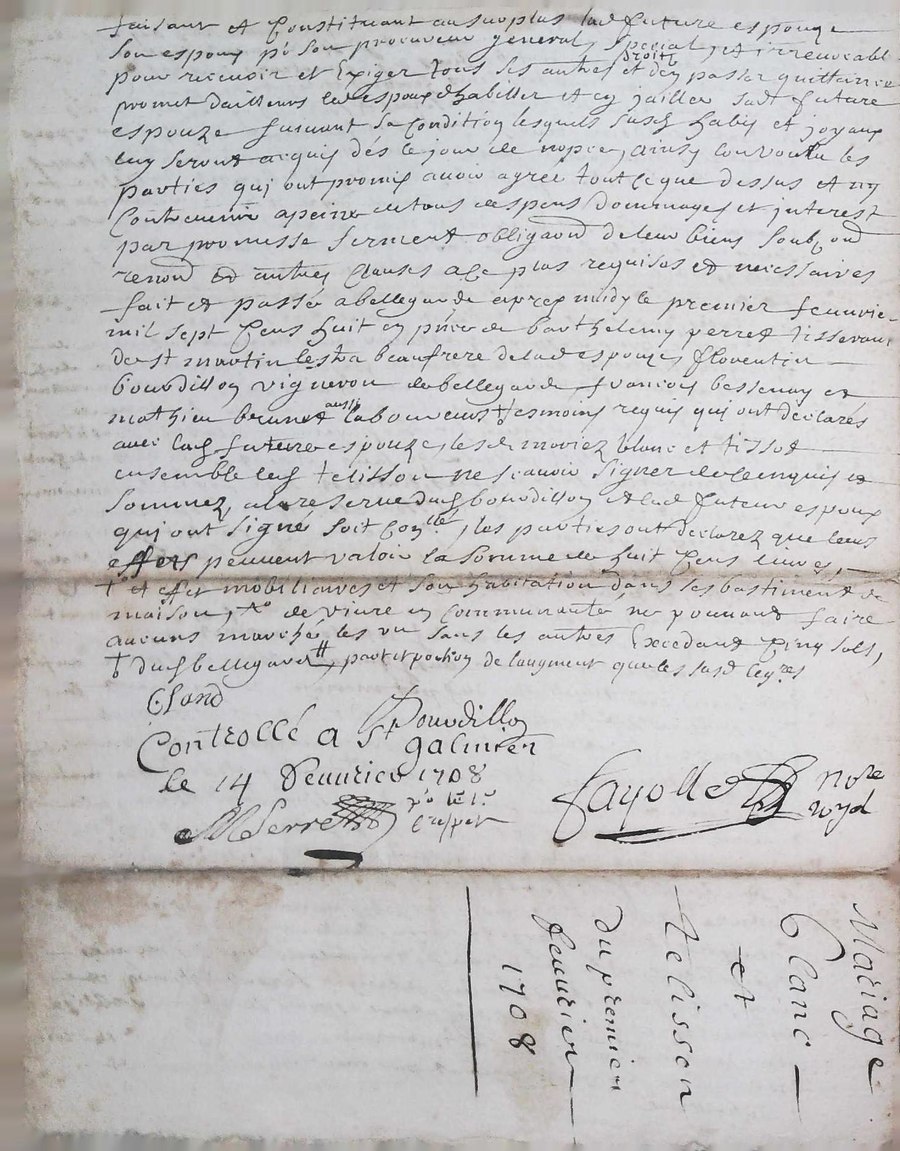 faisant et Constituant au surplus lad future espouze
son espoux p̄r son procureur general, special, et irrevocabl
pour recevoir et Exiger tous ses autres droits et den passer quittance
promet dailleurs led espoux dhabiller et en jailler sad future
espouze suivant sa Condition lesquels susd habis et joyaux
luy seront acquis des le jour de nopce, ainsy convoulu les
parties qui ont promis avoir agreé tout ce que dessus et ny
Contrevenir a peine de tous despens dommages et interest
par promesse serment obligaon̄ de leur biens soubz on̄
renon̄ et autres Clauses a ce plus requises et necessaires
fait et passé a bellegarde apres midy le premier feuvrie
mil sept Cens huit en p̄nce de barthelemy perret tisseran
de st martin lestra beaufrere de lad espouze, florentin
bourdillon vigneron de bellegarde, francois bessenay et
mathieu brunet aussi laboureurs † tesmoins requis qui ont declarés
avec lad future espouze, lesd moriez blanc et tissot
ensemble lesd telisson ne scavoir signer de ce enquis et
sommez, a la reserve dud bourdillon et lad futeur espoux
qui ont signé soit Con̄lle, les parties ont declarez que leurs
effets peuvent valoir la somme de huit Cens livres, —
† et effet mobiliaires et son habitation dans ses bastiment de
maison, de vivre en Communauté ne pouvant faire
aucuns marché les un sans les autres Excedant Cinq sols,
† dud bellegarde, part et portion de laugment que les susd legres
Bourdillon
Controllé a St galmier
le 14 feuvrier 1708
MSerre
Fayolle
No̅re
royal
Mariage
Blanc —
et
telisson
du premier
feuvrier
1708